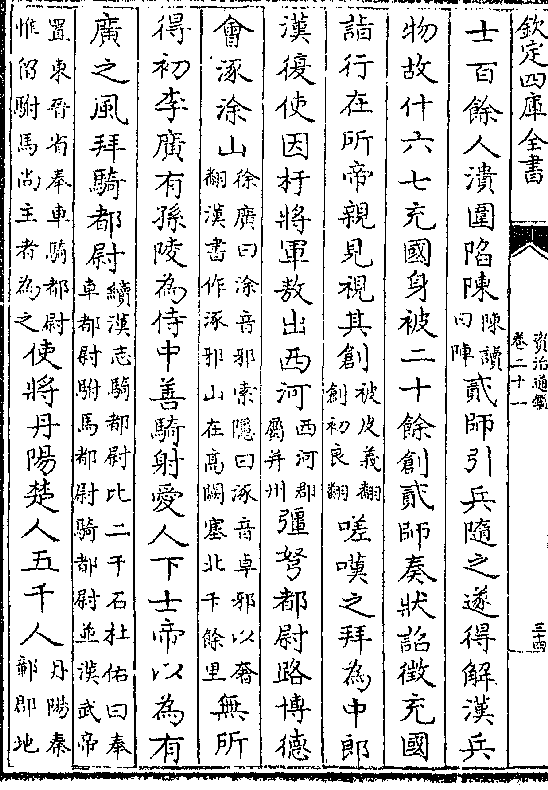 欽定四庫全書
資治通鑑
卷二十一
三十四
士百餘人潰圍陷陳陳讀曰陣貳師引兵隨之遂得解漢兵
物故什六七充國身被二十餘創貳師奏狀詔徵充國
詣行在所帝親見視其創被皮義翻創初良翻嗟嘆之拜為中郎
漢復使因杅將軍敖出西河西河郡屬并州彊弩都尉路博德
會涿涂山徐廣曰涂音邪索隱曰涿音卓邪以奢翻漢書作涿邪山在高闕塞北千餘里無所
得初李廣有孫陵為侍中善騎射愛人下士帝以為有
廣之風拜騎都尉續漢志騎都尉比二千石杜佑曰奉車都尉駙馬都尉騎都尉並漢武帝
置東晉省奉車騎都尉惟留駙馬尚主者為之使將丹陽楚人五千人丹陽秦鄣郡地